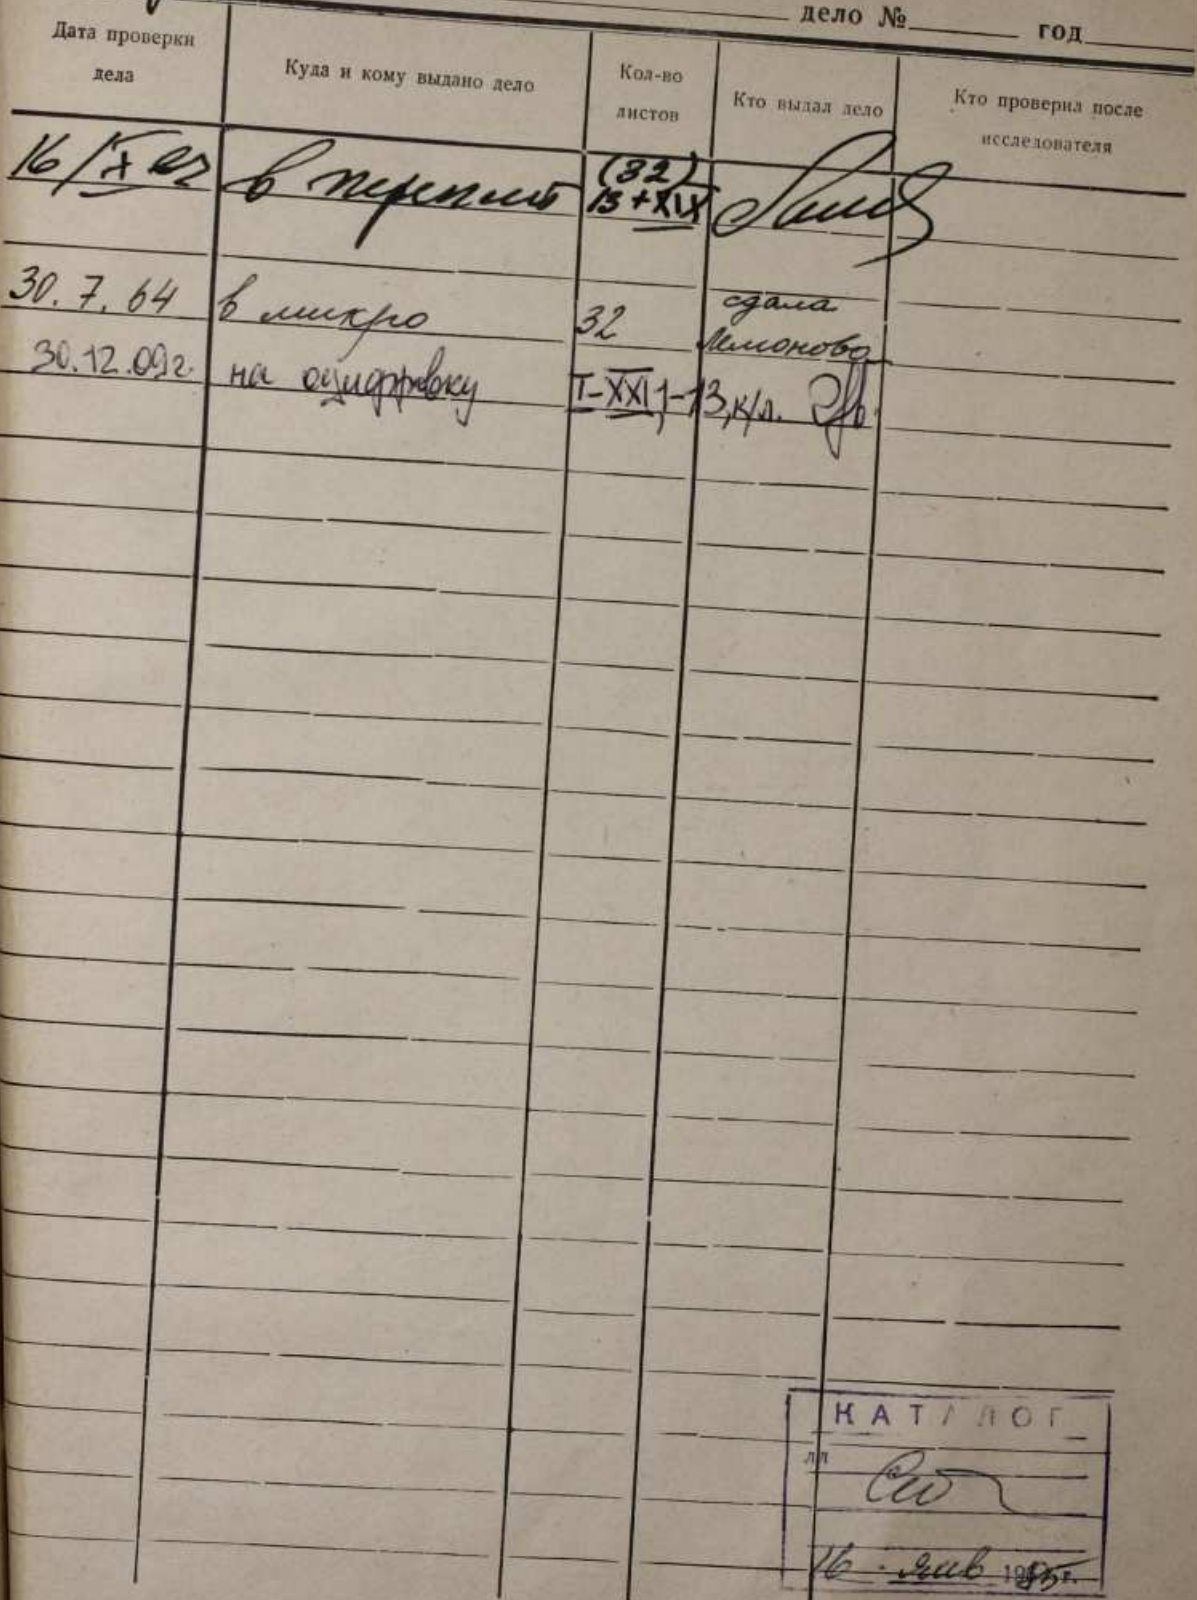 дело № год
Дата проверки дела
Куда и кому выдано дело
Кол-во листов
Кто выдал дело
Кто проверил после исследователя
16/X в переплёт (32) 13+XIX
30.7.64 в микро 32 сдала
30.12.09г. на оцифровку I-XXI, 1-13, к/л.
КАТАЛОГ
лл
16 янв 1985г.